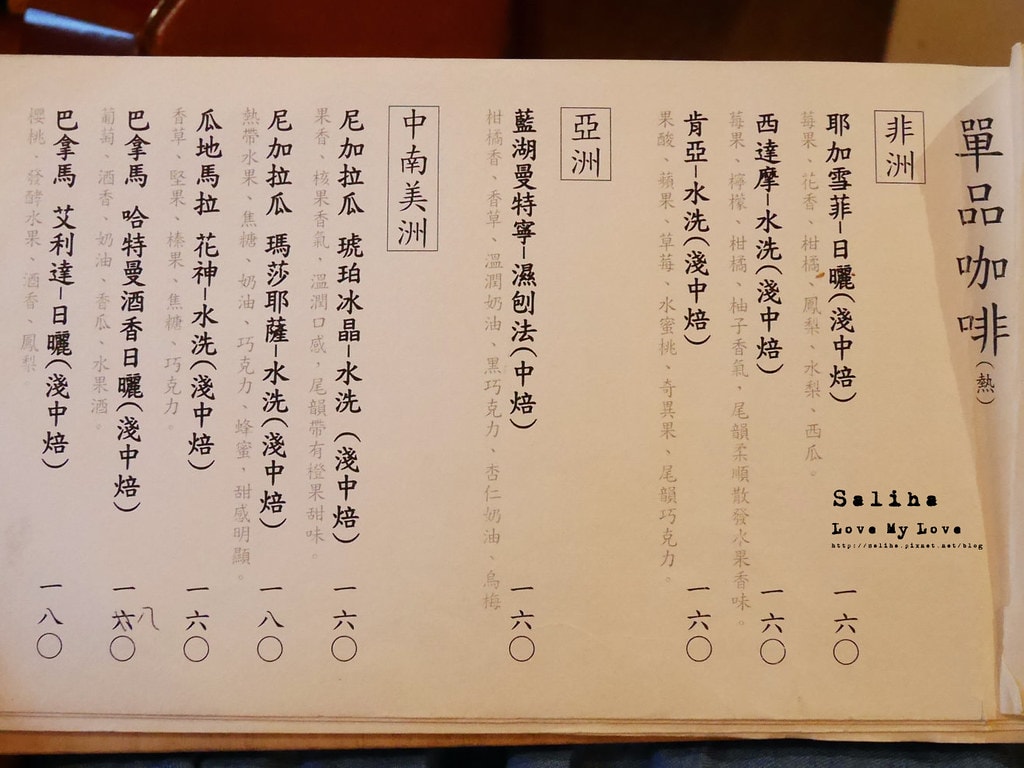 單品咖啡(熱)
非洲
耶加雪菲-日曬(淺中焙) 一六〇
莓果、花香、柑橘、鳳梨、水梨、西瓜。
西達摩-水洗(淺中焙) 一六〇
莓果、檸檬、柑橘、柚子香氣,尾韻柔順散發水果香味。
肯亞-水洗(淺中焙) 一六〇
果酸、蘋果、草莓、水蜜桃、奇異果、尾韻巧克力。
亞洲
藍湖曼特寧-濕刨法(中焙) 一六〇
柑橘香、香草、溫潤奶油、黑巧克力、杏仁奶油、烏梅
中南美洲
尼加拉瓜 琥珀冰晶-水洗 (淺中焙) 一六〇
果香、核果香氣、溫潤口感,尾韻帶有橙果甜味。
尼加拉瓜 瑪莎耶薩-水洗(淺中焙) 一八〇
熱帶水果、焦糖、奶油、巧克力、蜂蜜,甜感明顯。
瓜地馬拉 花神-水洗(淺中焙) 一六〇
香草、堅果、榛果、焦糖、巧克力。
巴拿馬 哈特曼酒香日曬(淺中焙) 一六八〇
葡萄、酒香、奶油、香瓜、水果酒。
巴拿馬 艾利達-日曬(淺中焙) 一八〇
櫻桃、發酵水果、酒香、鳳梨。
Saliha
Love My Love
http://saliha.pixnet.net/blog